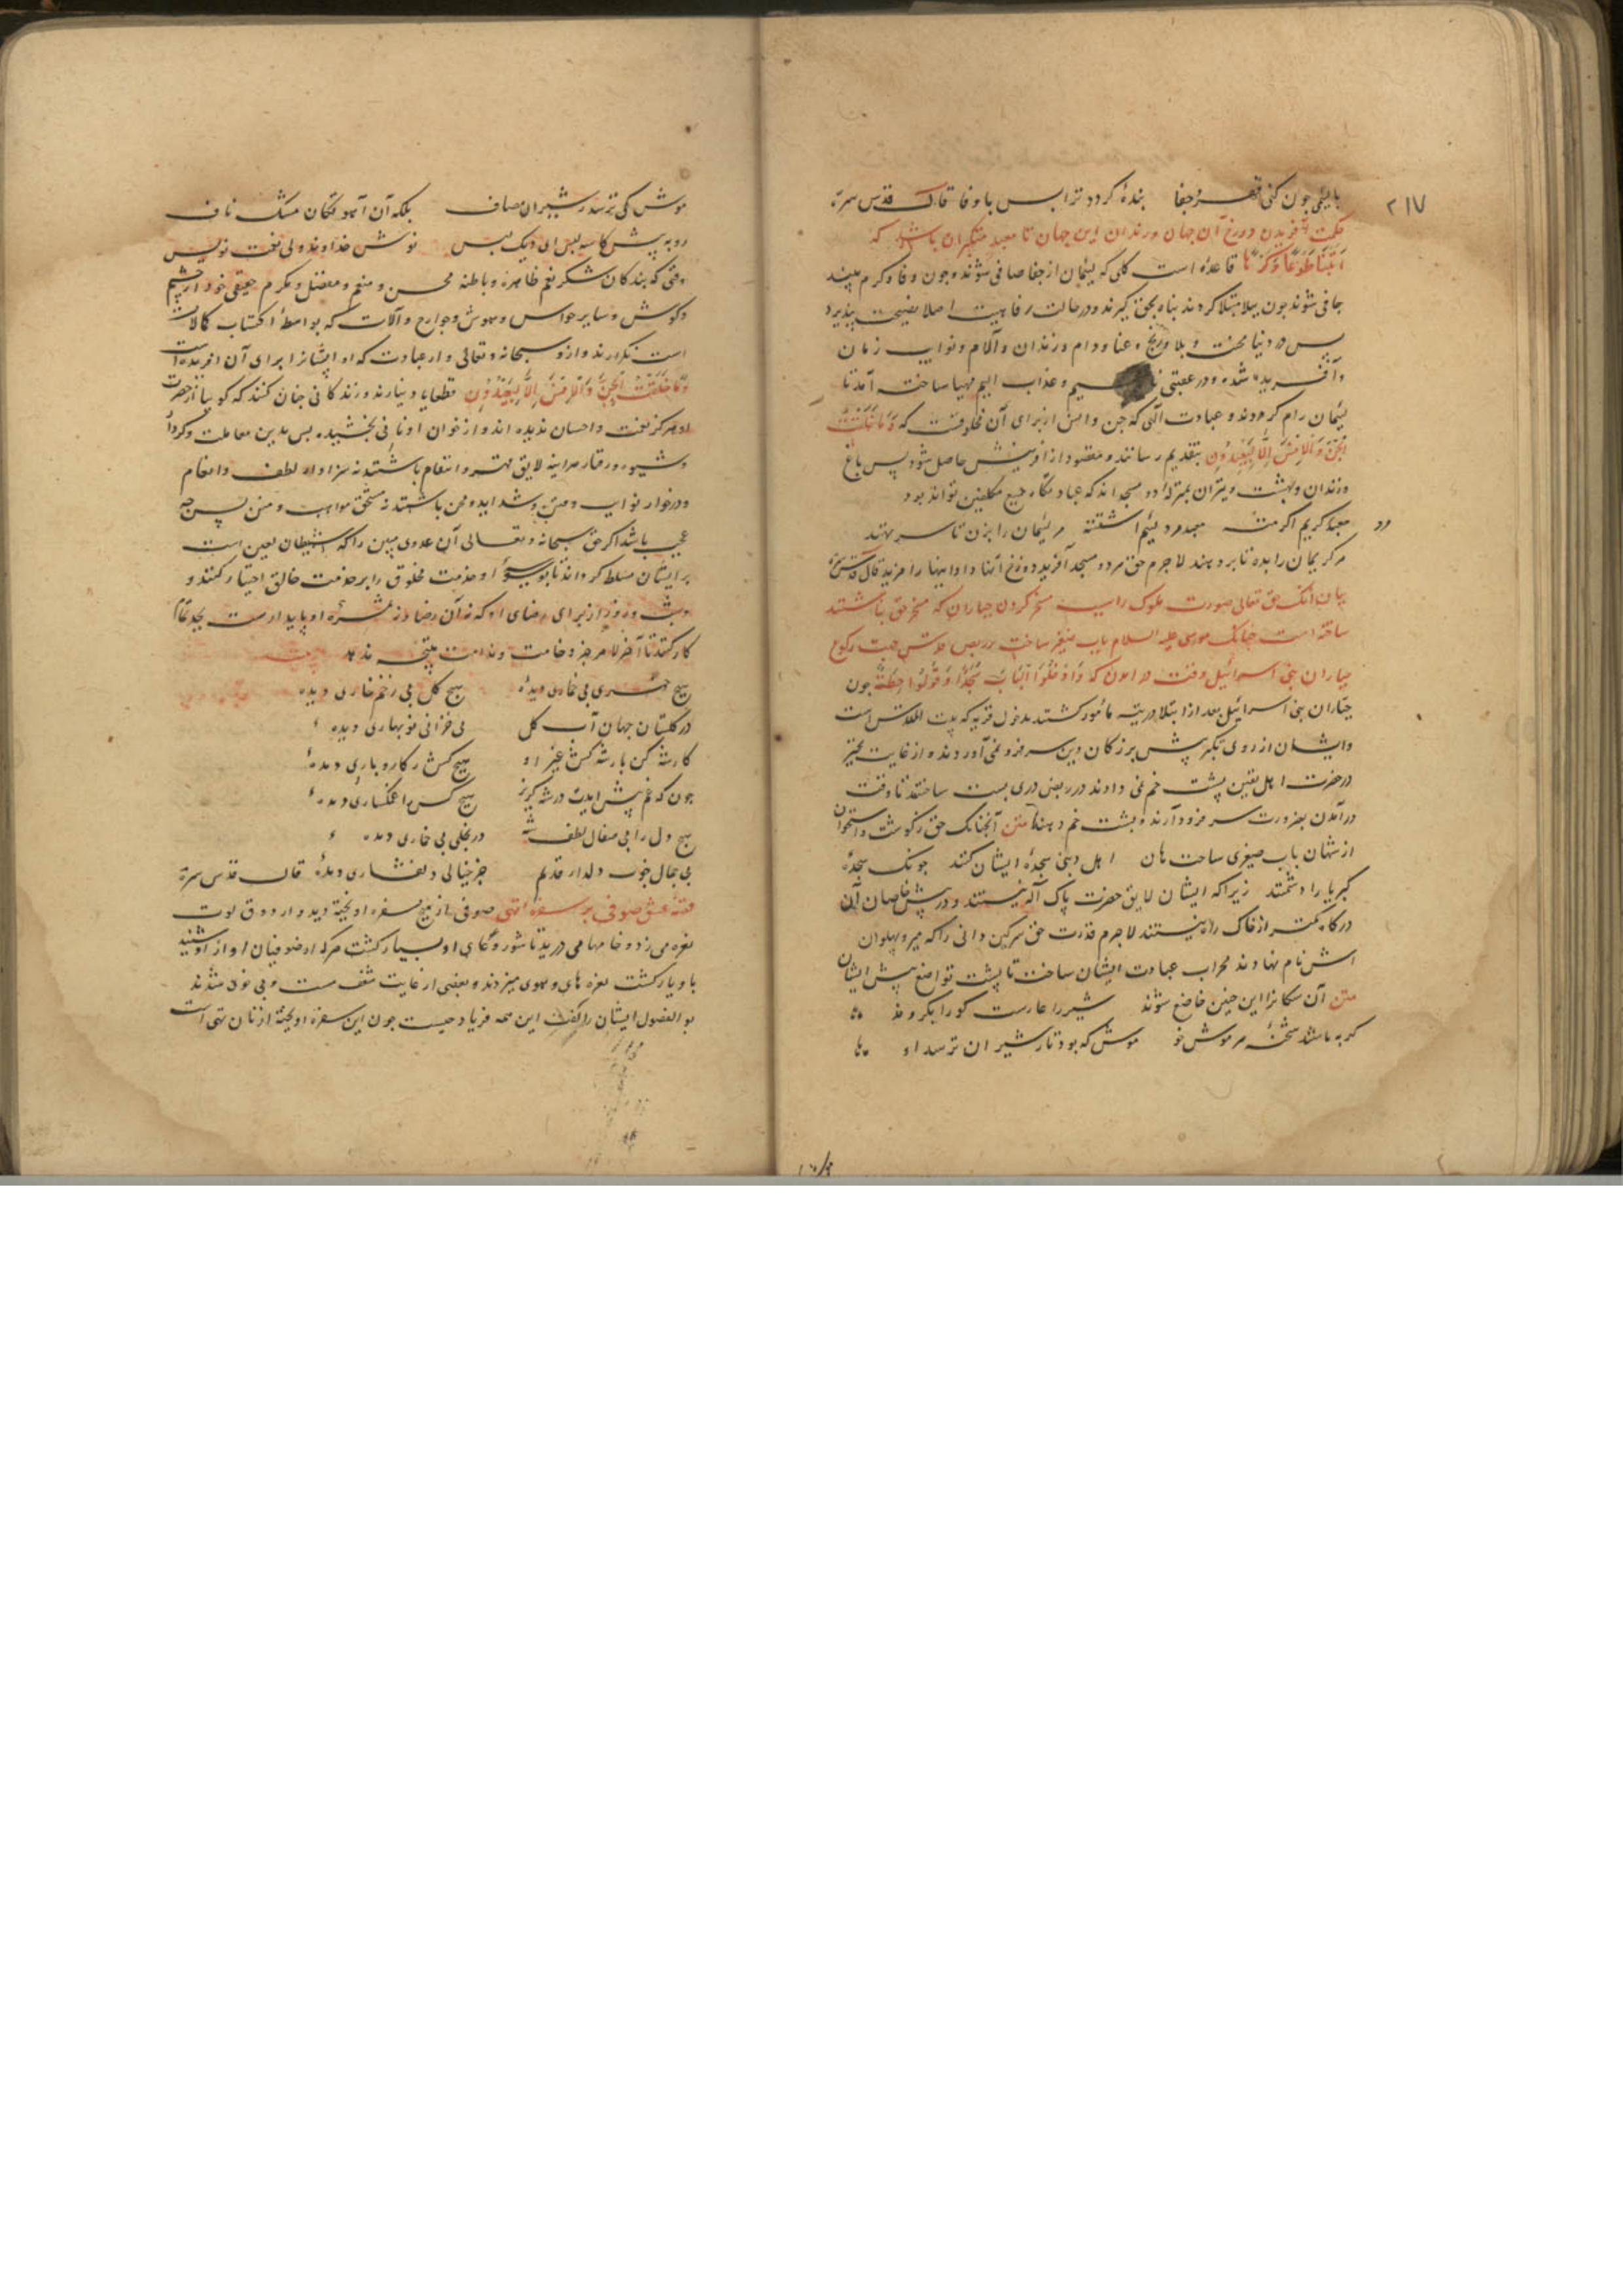 ۲۱۷
با لئیمی چون کنی قهر و جفا بندهٔ گردد ترا بس با وفا قال قدس سره
حکمت آفریدن دوزخ آن جهان و زندان این جهان تا معبد متکبران باشد که
ائتیا طوعا او کرها قاعدهٔ است کلی که لئیمان از جفا صافی شوند و چون وفا و کرم بینند
جافی شوند چون ببلا مبتلا گردند پناه بحق گیرند و در حالت رفاهیت اصلا نصیحت نپذیرند
پس در دنیا محنت و بلا و رنج و عنا و دام و زندان و آلام و نوایب زمان
و آفریده شده و در عقبی و عذاب الیم مهیا ساخته آمد تا
لئیمان رام گردند و عبادت الهی که جن و انس از برای آن مخلوقست که وما خلقت
الجن والانس الا لیعبدون بتقدیم رسانند و مقصود از آفرینش حاصل شود پس باغ
و زندان و بهشت و نیران بمنزلهٔ دو مسجد اند که عبادتگاه جمیع مکلفین تواند بود
معبد کریم اکرمته معبد مرد لئیم اسقمته مر لئیمان را بزن تا سر نهند
مر کریمان را بده تا بر دهند لاجرم حق هر دو مسجد آفرید دوزخ آنها را و اینها را مزید قال قدس سره
بیان آنک حق تعالی صورت ملوک را سبب مسخر کردن جباران که مسخر حق نباشند
ساخته است چنانک موسی علیه السلام باب صغیر ساخت بر ربض قدس جهت رکوع
جباران بنی اسرائیل وقت در آمدن که وادخلوا الباب سجدا وقولوا حطة چون
جباران بنی اسرائیل بعد از ابتلا در تیه مأمور گشتند بدخول قریه که بیت المقدس است
و ایشان از روی تکبر پیش بزرگان دین سر فرو نمی آوردند و از غایت تجبر
در حضرت اهل یقین پشت خم نمی دادند در ربض دری پست ساختند تا وقت
در آمدن بضرورت سر فرود آرند و پشت خم دهند متن آنچنانک حق ز گوشت و استخوان
از شهان باب صغیری ساخت هان اهل دنیی سجدهٔ ایشان کنند چونک سجدهٔ
کبریا را دشمنند زیرا که ایشان لایق حضرت پاک اله نیستند و در پیش خاصان آن
درگاه کمتر از خاک راه نیستند لاجرم قدرت حق سرگین دانی را که میر و پهلوان
اسش نام نهادند محراب عبادت ایشان ساخت تا پشت تواضع پیش ایشان
متن آن سگانرا این خسان خاضع شوند شیر را عارست کو را بگروند
گربه باشد شحنهٔ هر موش خو موش که بود تا ز شیران ترسد او
موش کی ترسد ز شیران مصاف بلکه آن آهو تگان مشک ناف
رو به پیش کاسه لیس ای دیگ لیس توش خداوند و ولی نعمت نویس
وقتی که بندگان شکر نعم ظاهره و باطنه محسن و منعم و مفضل و مکرم حقیقی خود از چشم
و گوش و سایر حواس و هوش و جوارح و آلات که بواسطهٔ اکتساب کمالات
است نگزارند و از و سبحانه و تعالی و از عبادت که او ایشانرا برای آن آفریده است
وما خلقت الجن والانس الا لیعبدون قطعا یاد نیارند و زندگانی چنان کنند که گوییا از حضرت
او هرگز نعمت و احسان ندیده اند و از خوان او نانی نچشیده پس بدین معاملت و کردار
و شیوه و رفتار هر اینه لایق قهر و انتقام باشند نه سزاوار لطف و انعام
و درخوار نوایب و شداید و محن باشند نه مستحق مواهب و منن پس چه
عجب باشد اگر حق سبحانه و تعالی آن عدوی مبین را که شیطان لعین است
بر ایشان مسلط گرداند تا بوسوسهٔ او خدمت مخلوق را بر خدمت خالق اختیار کنند و
شب و روز از برای رضای او که نه آن رضا را ثمره و نه او پایدارست بجد تمام
کار کنند تا آخر الامر جز وخامت و ندامت نتیجه ندهد
هیچ خمری بی خماری دیدهٔ هیچ گل بی زخم خاری دیدهٔ
در گلستان جهان آب و گل بی خزانی نوبهاری دیدهٔ
کار شه کن بار شه کش غیر او هیچ کس را کار و باری دیدهٔ
چون که غم پیش آیدت در شه گریز هیچ کس را غمگساری دیدهٔ
هیچ دل را بی صقال لطف شه در تجلی بی غباری دیدهٔ
بی جمال خوب دلدار قدیم جز خیالی دلفشاری دیدهٔ قال قدس سره
قصهٔ عشق صوفی بر سفرهٔ تهی صوفی از میخ سفره آویخته دید و از ذوق لوت
نعره می زد و جامها می درید تا شور و گاه او بسیار گشت هر که از صوفیان آواز او شنید
با او یار گشت نعره های و هوی میزدند و بعضی از غایت شعف مست و بی خود شدند
بو الفضول ایشان را گفت این همه فریاد چیست چون این سفره آویخته از نان تهی است